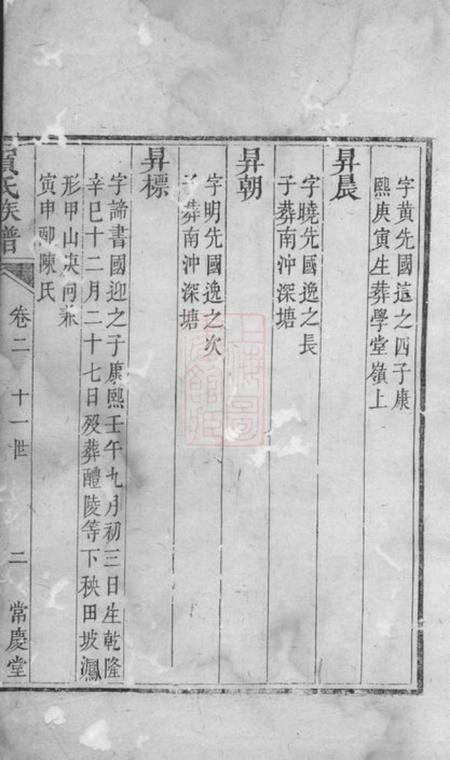 字黄先國這之四子康
熙庚寅生葬學堂嶺上
昇晨
字曉先國逸之長
子葬南沖深塘
昇朝
字明先國逸之次
葬南沖深塘
昇標
字諦書國迎之子康熙壬午九月初三日生乾隆
辛巳十二月二十七日殁葬醴陵等下秧田坡鳳
形甲山庚向兼
寅申配陳氏
氏族譜
卷二
十一世
二
常慶堂